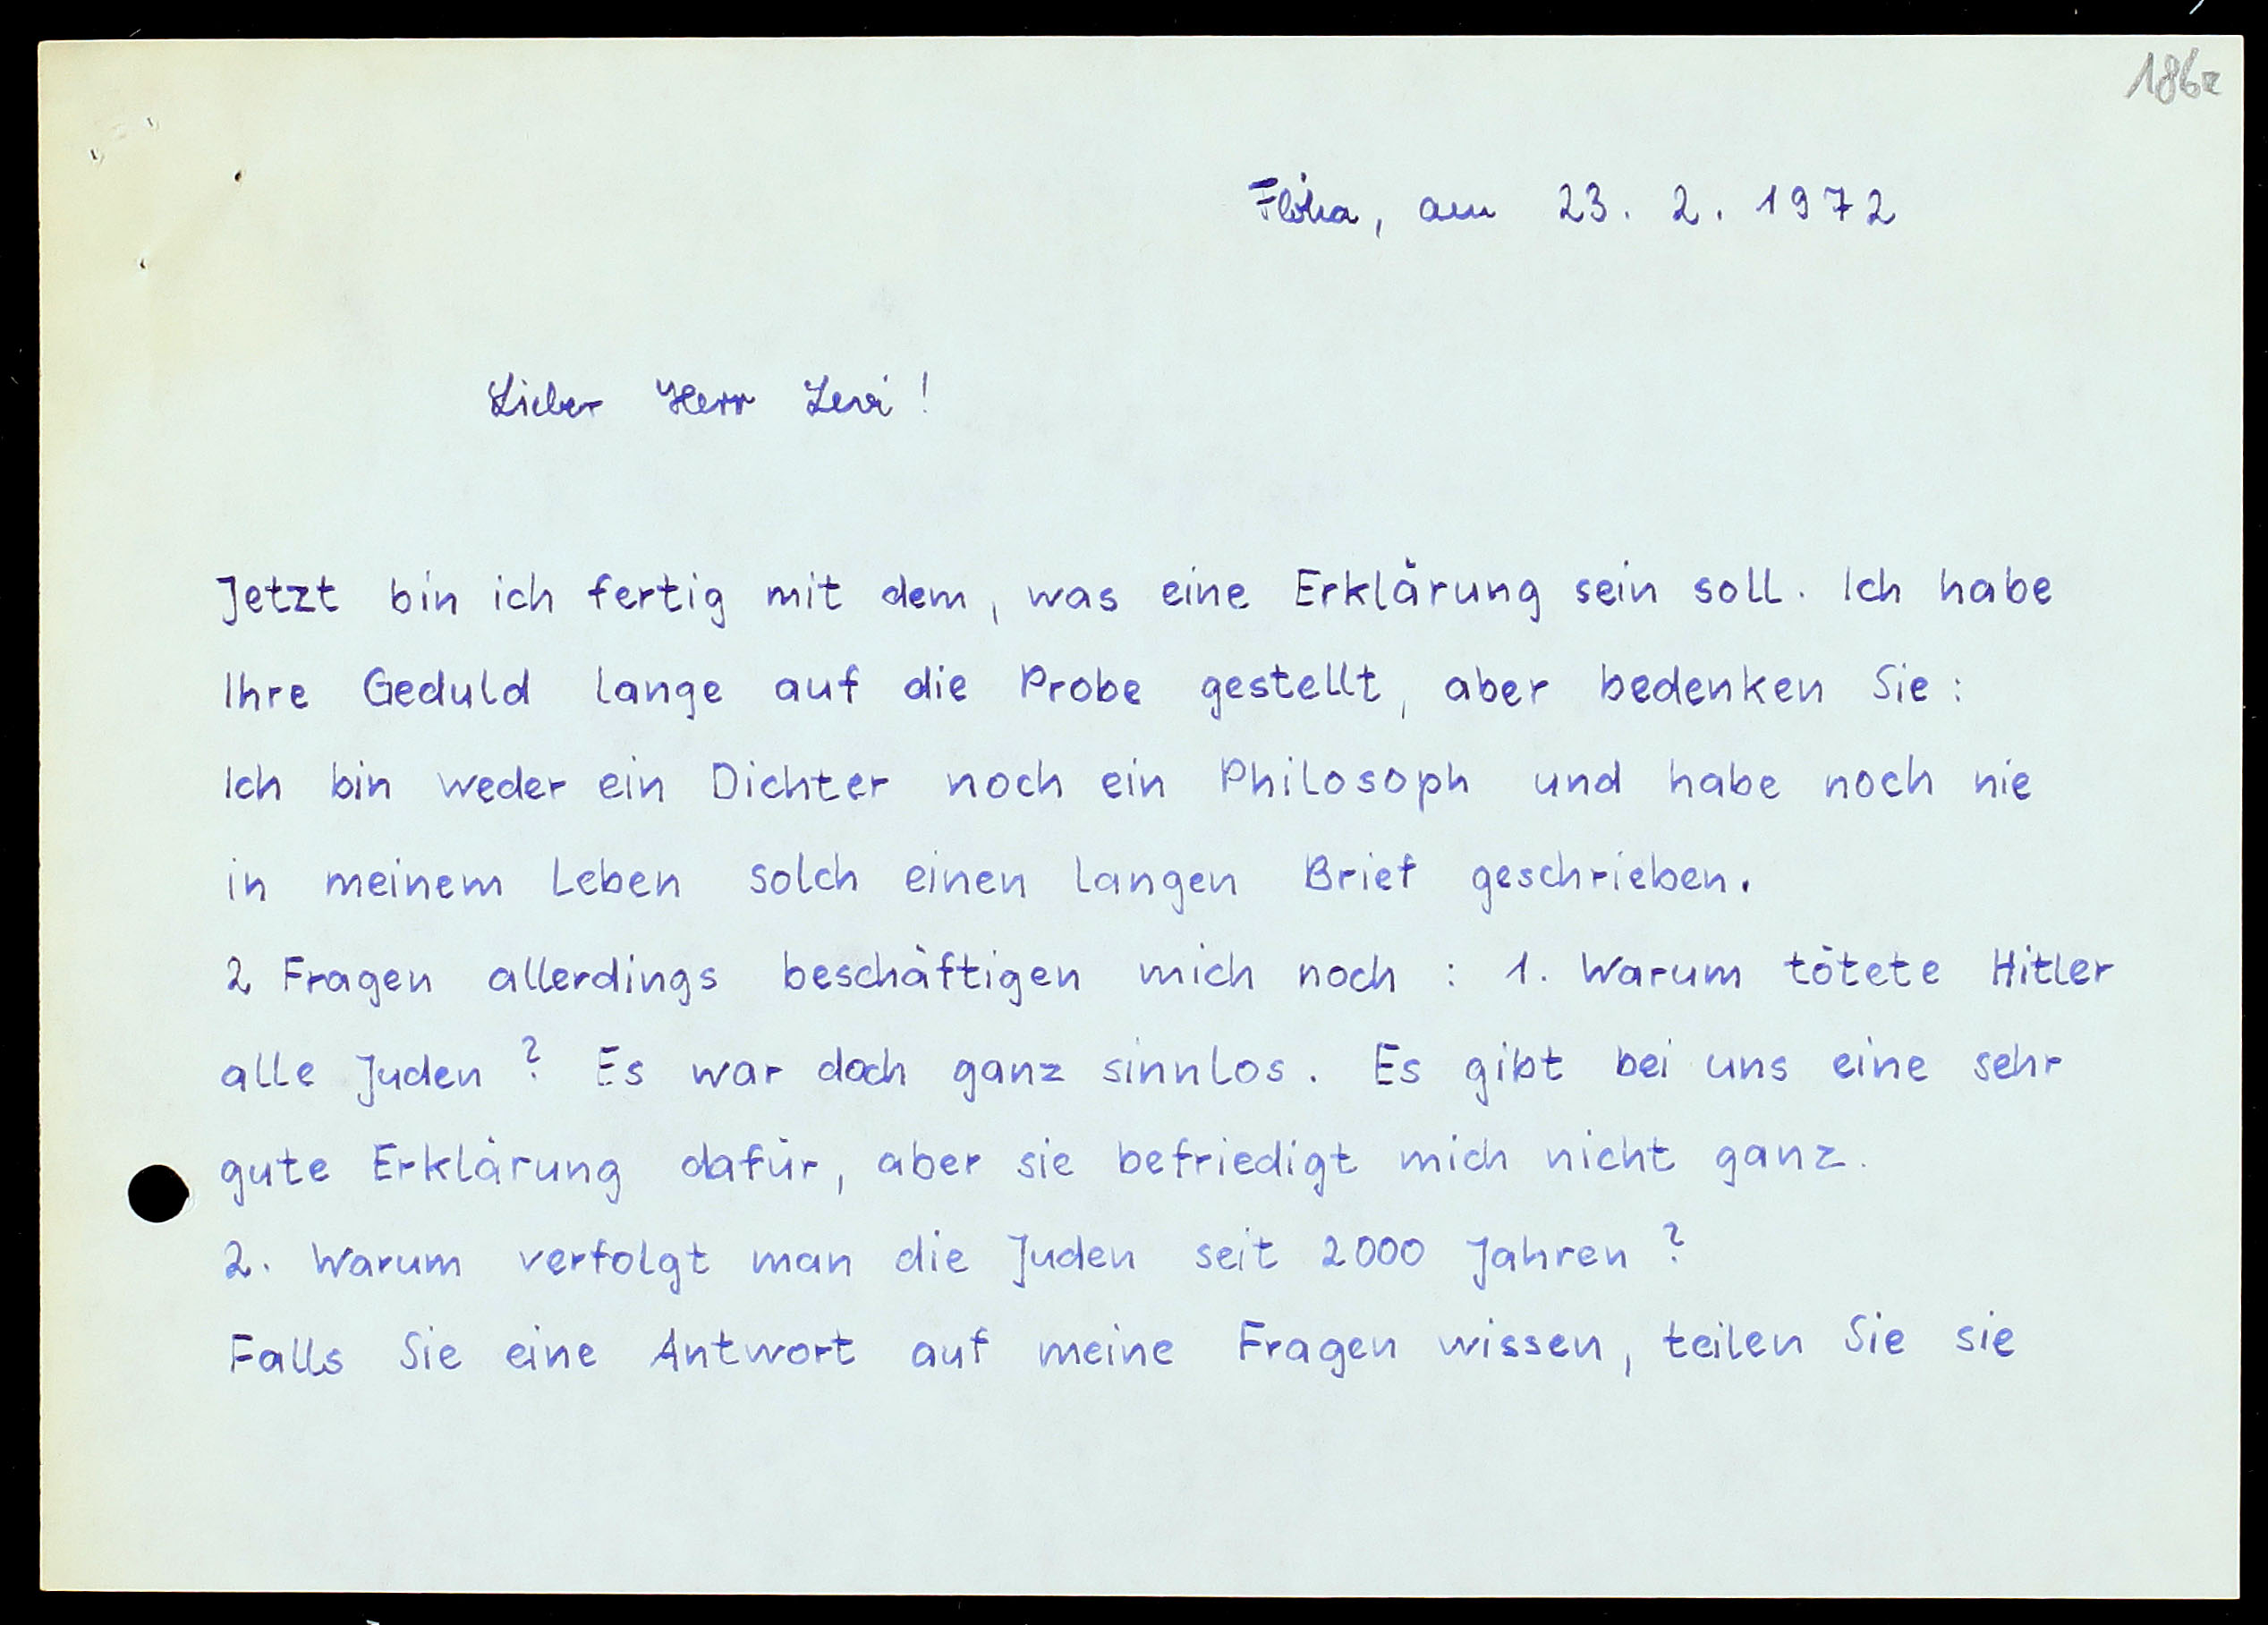 186r
Flöha, am 23. 2. 1972
Lieber Herr Levi!
Jetzt bin ich fertig mit dem, was eine Erklärung sein soll. Ich habe
Ihre Geduld lange auf die Probe gestellt, aber bedenken Sie:
Ich bin weder ein Dichter noch ein Philosoph und habe noch nie
in meinem Leben solch einen langen Brief geschrieben.
2 Fragen allerdings beschäftigen mich noch: 1. Warum tötete Hitler
alle Juden? Es war doch ganz sinnlos. Es gibt bei uns eine sehr
gute Erklärung dafür, aber sie befriedigt mich nicht ganz.
2. Warum verfolgt man die Juden seit 2000 Jahren?
Falls Sie eine Antwort auf meine Fragen wissen, teilen Sie sie